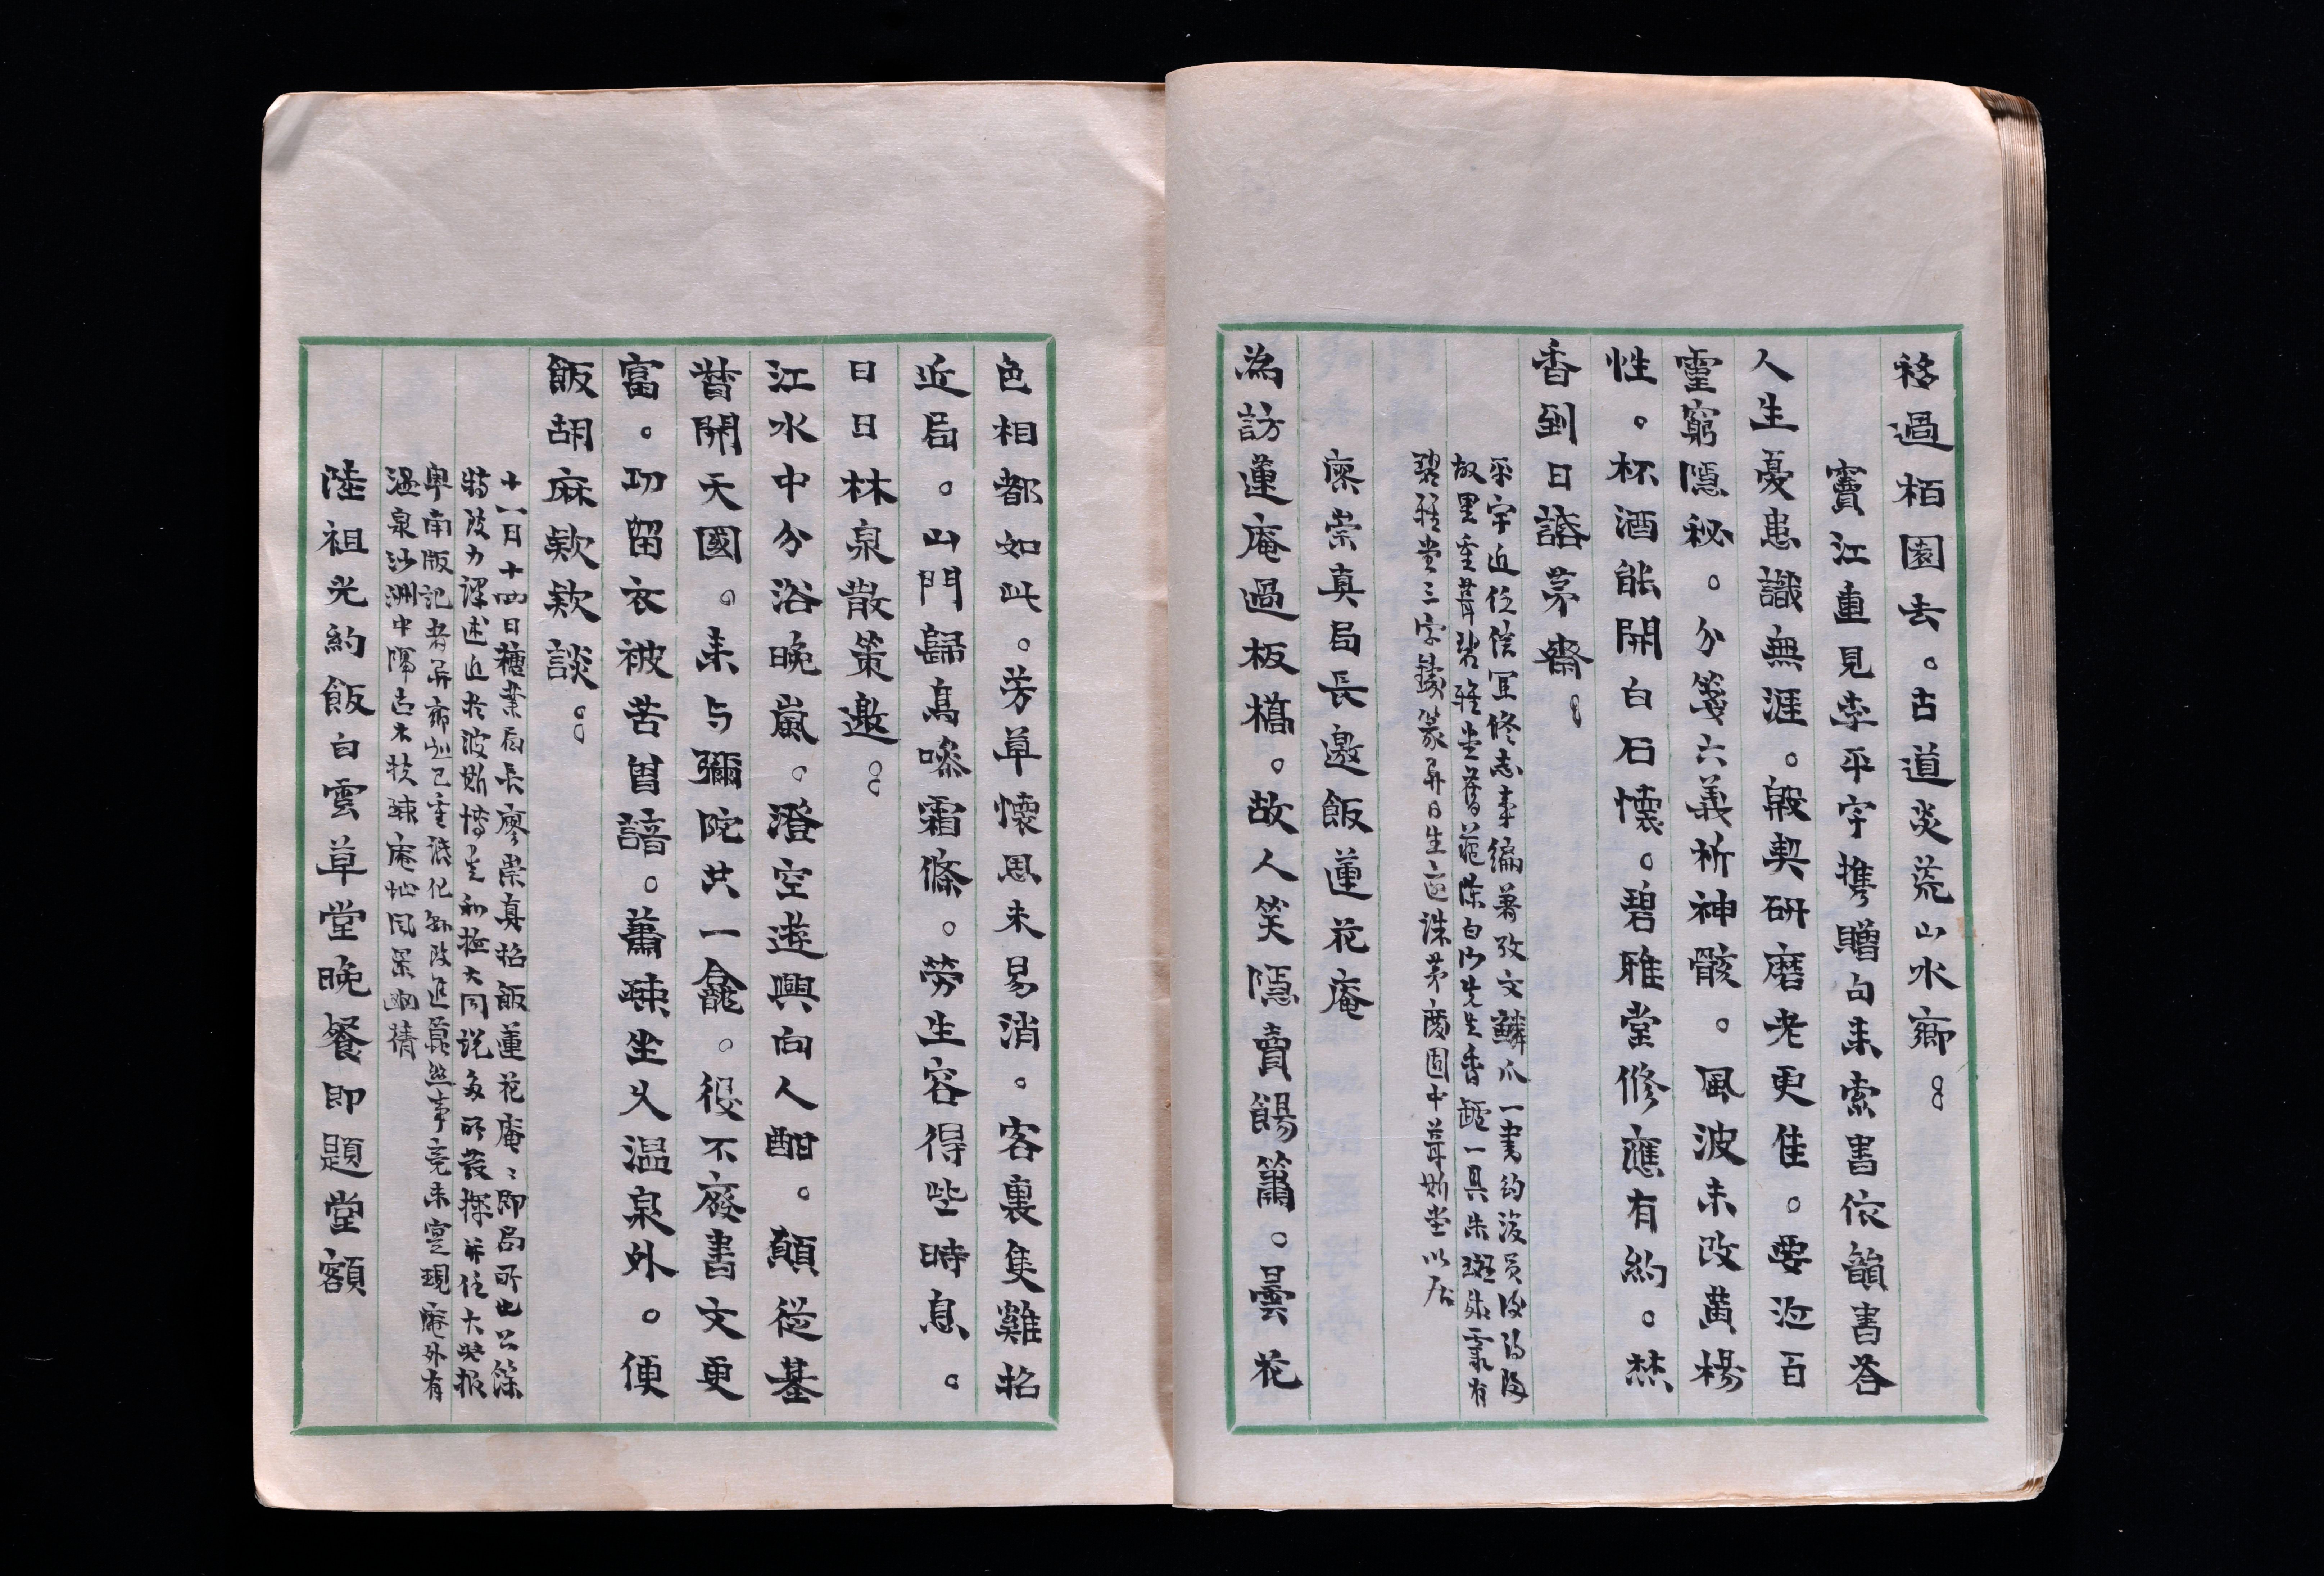 移過栢園去。古道炎荒山水鄉。
寶江重見李平宇攜贈句来索書依韻書荅
人生憂患識無涯。殷契研磨老更佳。要迎百
靈窮隱秘。分箋六義析神骸。風波未改黃楊
性。杯酒能開白石懷。碧雅堂修應有約。焚
香到日譗茅齋。
平宇近任信宜修志事編著攷文鱗爪一書約後員
故里重葺碧雅堂舊藏陳白沙先生香一具朱斑有
碧雅堂三字篆异日生還誅茅園中葺斯堂以居
廖崇真局長邀飯蓮花庵
為訪蓮庵過板橋。故人笑隱賣餳簫。曇花
色相都如此。芳草懷思未易消。客裏隻雞招
近局。山門歸鳥啄霜條。勞生容得些時息。
日日林泉散策邀。
江水中分浴晚嵐。澄空遊興向人酣。顛從基
督開天國。来与彌陀共一龕。役不廢書文更
富。功留衣被苦曾諳。蕭疎坐久温泉外。便
飯胡麻欵欵談。
十一日十四日糖業局長廖崇真招飯蓮花庵〻即局所也公餘
特致力譯述近於波斯博愛和極大同說多所發揮並任大光報
粤南版記者
温泉沙洲中隔古木扶疎庵地風景幽蒨
陸祖光約飯白雲草堂晚餐即題堂額